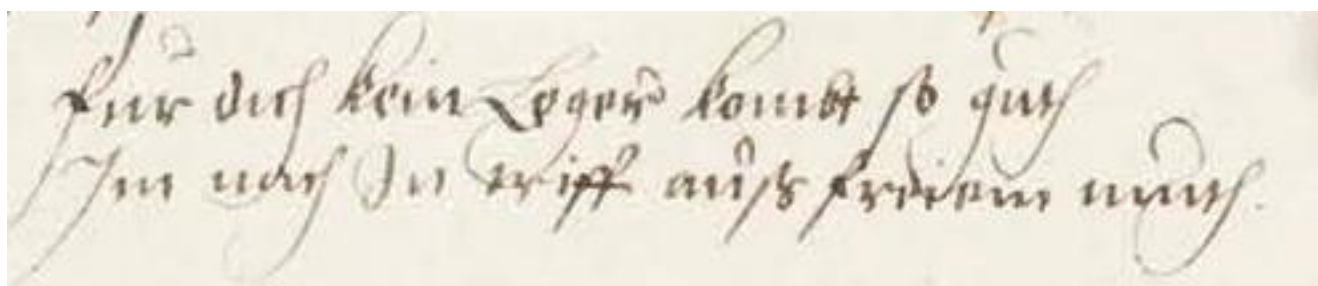 für dich kein Leger kombt so guth
Im nach In triff auß freiem muth.